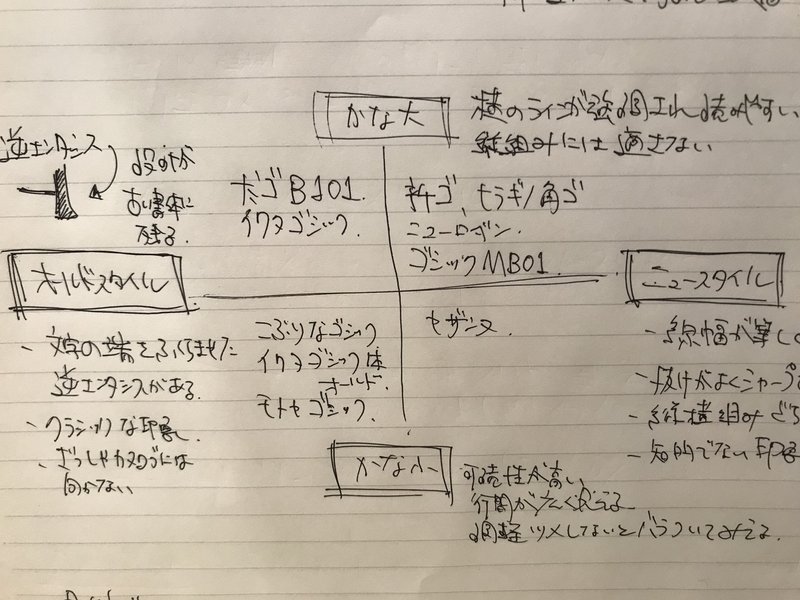 かな大
横のラインが強調され読みやすい
縦組みには適さない
逆エンタシス
設計が
古い書体に
残る.
太ゴB101.
イワタゴシック
新ゴ、ヒラギノ角ゴ
ニューロダン.
ゴシックMB01.
オールドスタイル
ニュースタイル
- 文字の端をふくらませた
逆エンタシスがある.
- クラシックな印象.
- ざっしやカタログには
向かない
こぶりなゴシック
イワタゴシック体
オールド.
モトヤゴシック.
セザンヌ.
- 線幅が単し
- 抜けがよくシャープ
- 縦横組み
- 知的でない印象
かな小
可読性が高い
行間が広く見える
調整ツメしてないとバラついてみえる.